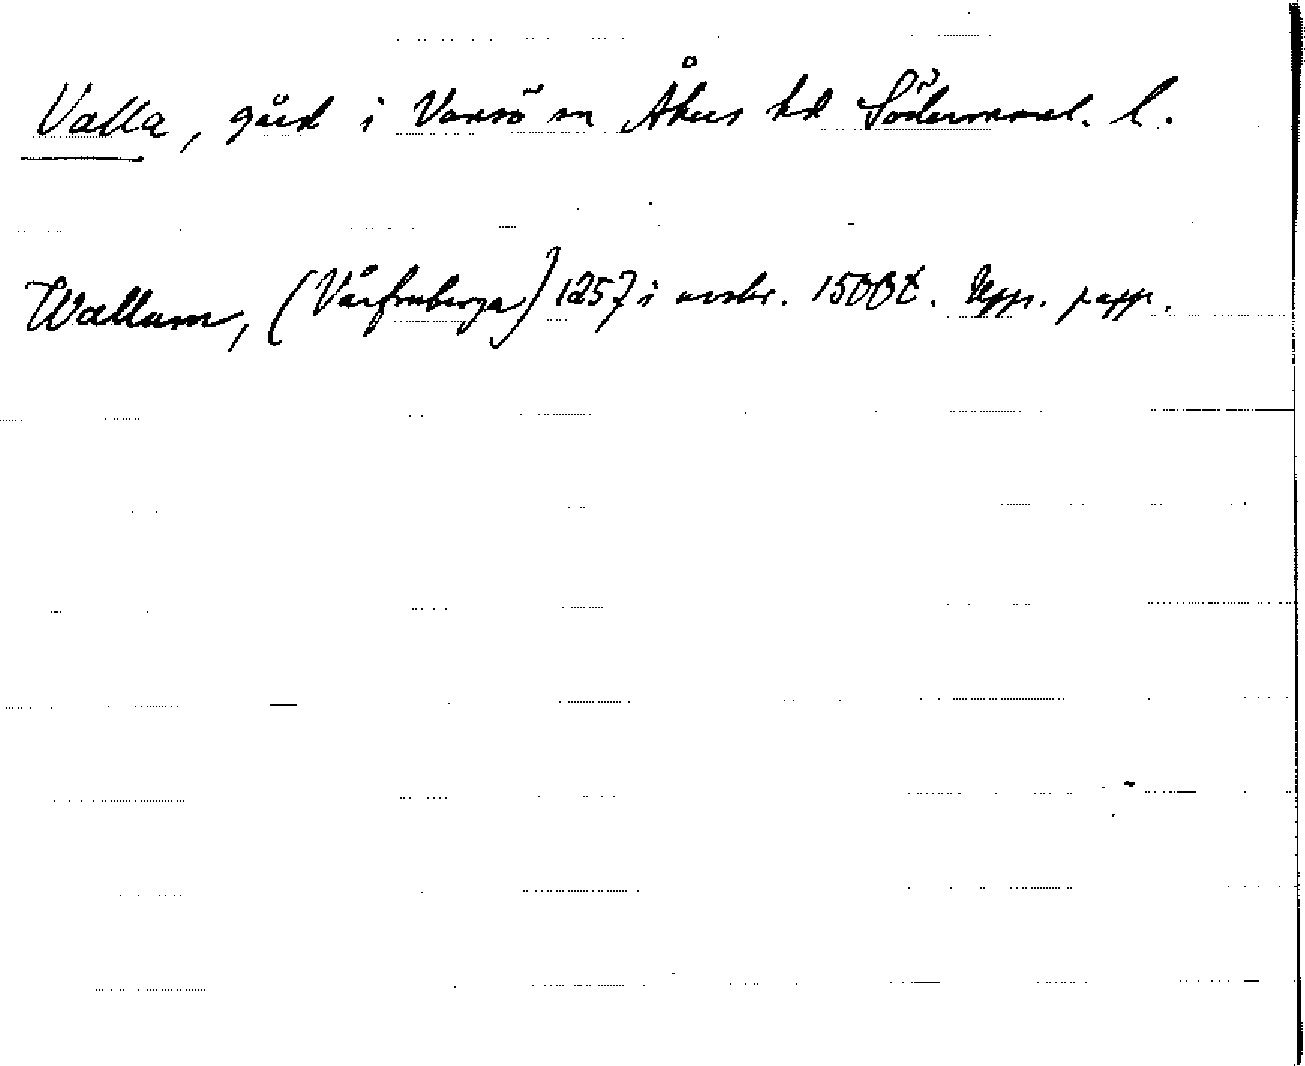 Valla, gård i Vansö sn Åkers hd Södermanl. l.
Wallum, (Vårfruberga) 1257 i avskr. 1500 t. Upps. papp.